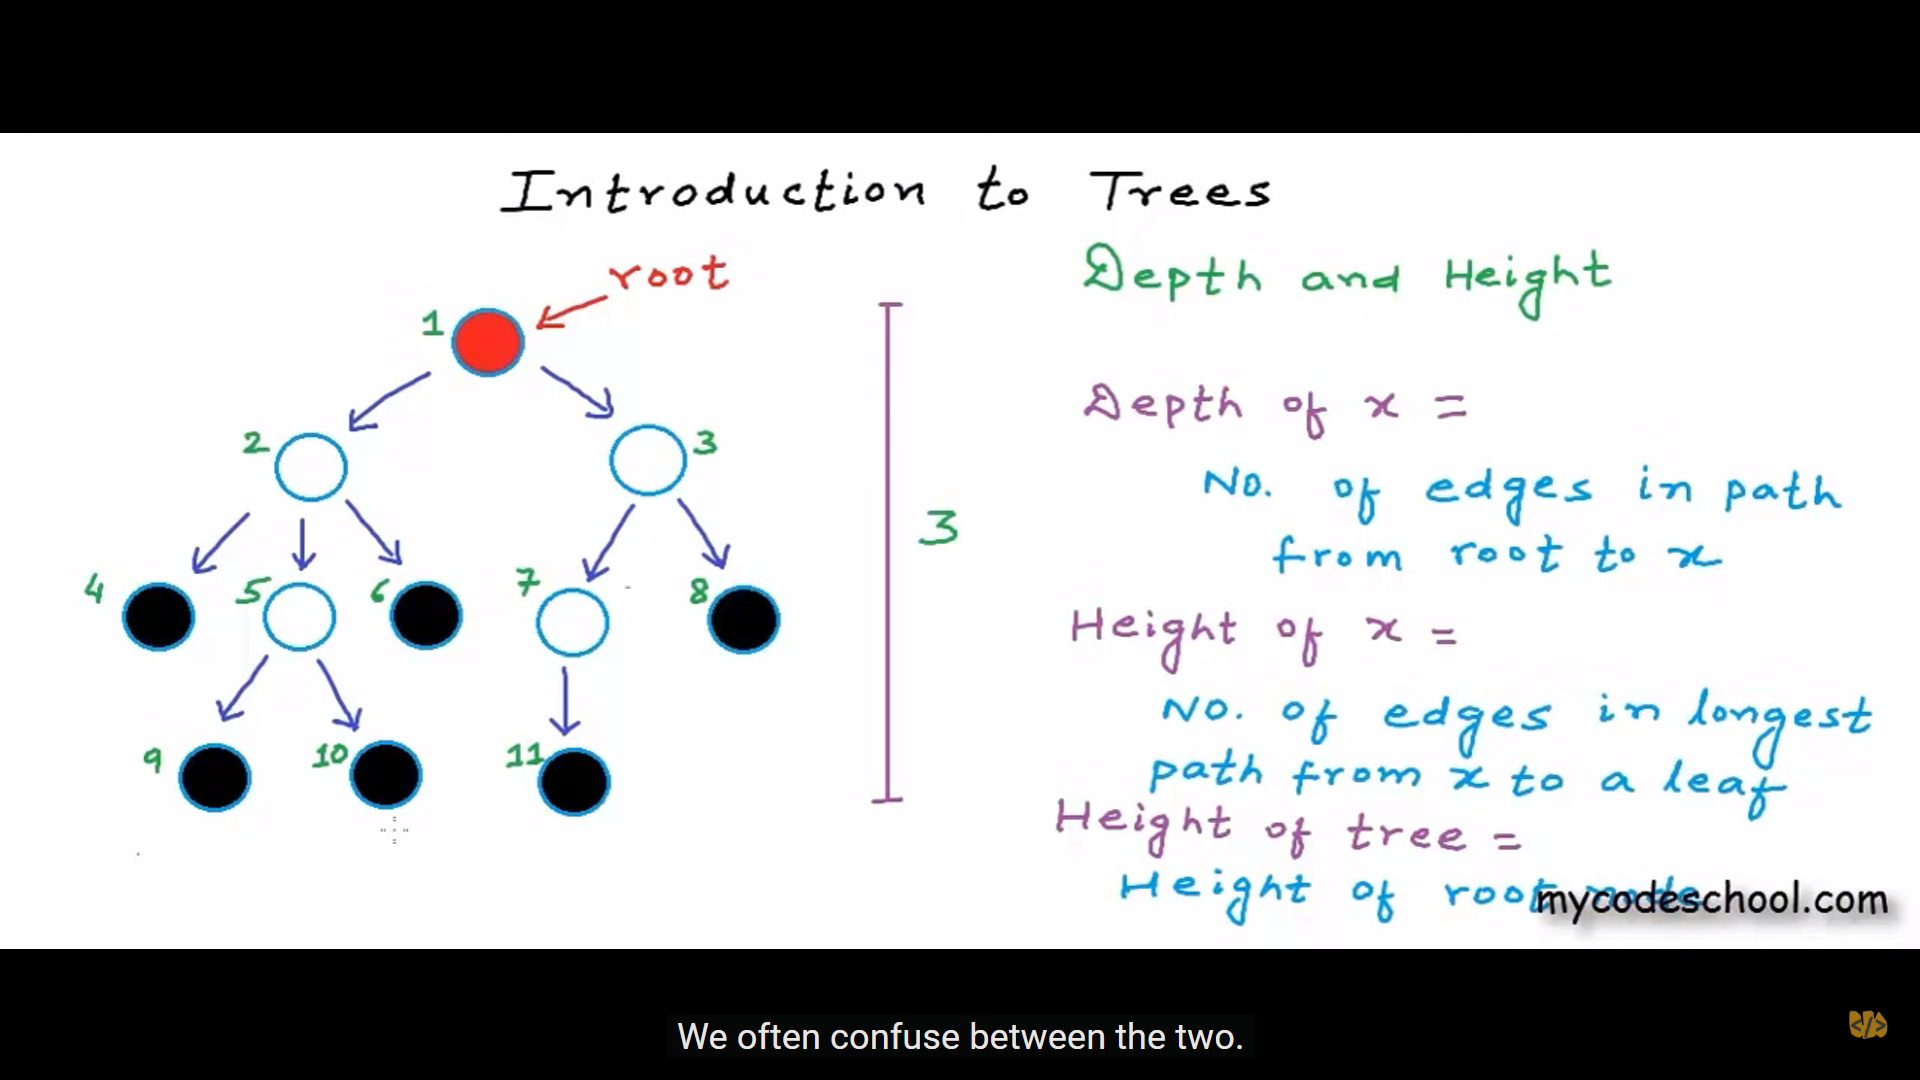 Introduction to Trees
root
Depth and Height
1
2
3
Depth of x =
No. of edges in path
from root to x
3
4
5
6
7
8
Height of x =
No. of edges in longest
path from x to a leaf
9
10
11
Height of tree =
Height of root node
mycodeschool.com
We often confuse between the two.